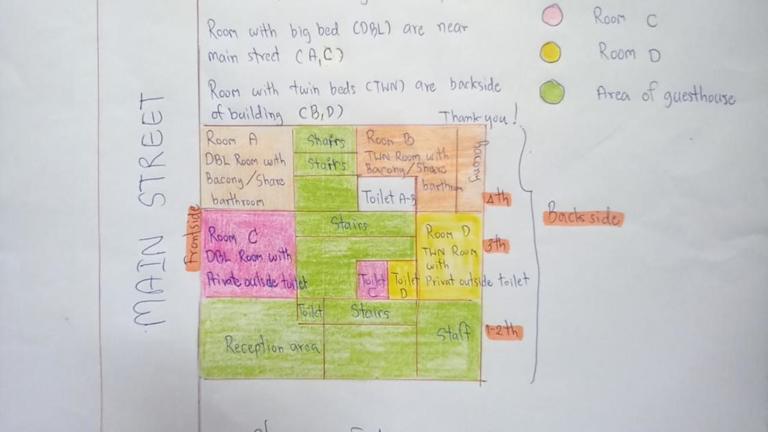 Room with big bed (DBL) are near
main street (A,C)
Room with twin beds (TWN) are backside
of building (B,D)
Thank you!
Room C
Room D
Area of guesthouse
MAIN STREET
Frontside
Room A
DBL Room with
Bacony/Share
barthroom
Stairs
Stairs
Room B
TWN Room with
Bacony/Share
barthrom
Bacony
Toilet A-B
4th
Backside
Room C
DBL Room with
Private outside toilet
Stairs
Toilet
C
Toilet
D
Room D
TWN Room
with
Privat outside toilet
3th
Toilet
Stairs
Reception area
Staff
1-2th